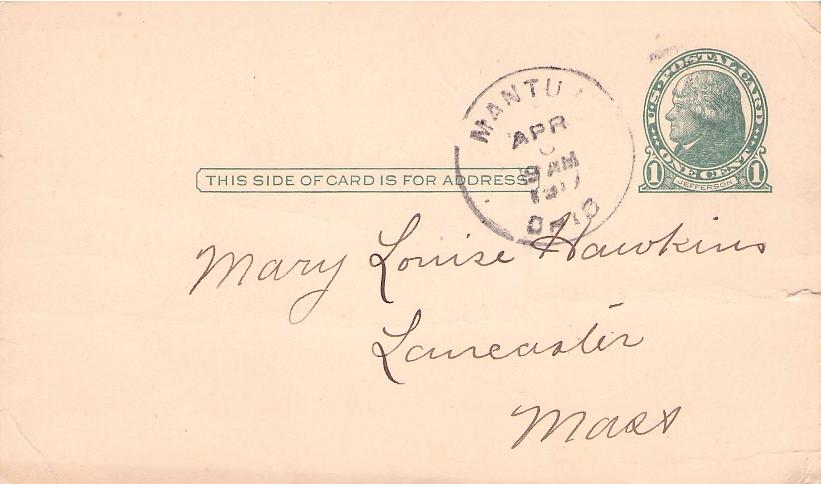 U.S. POSTAL CARD
ONE CENT
1 JEFFERSON 1
MANTU
APR
9 AM
OHIO
THIS SIDE OF CARD IS FOR ADDRESS
Mary Louise Hawkins
Lancaster
Mass